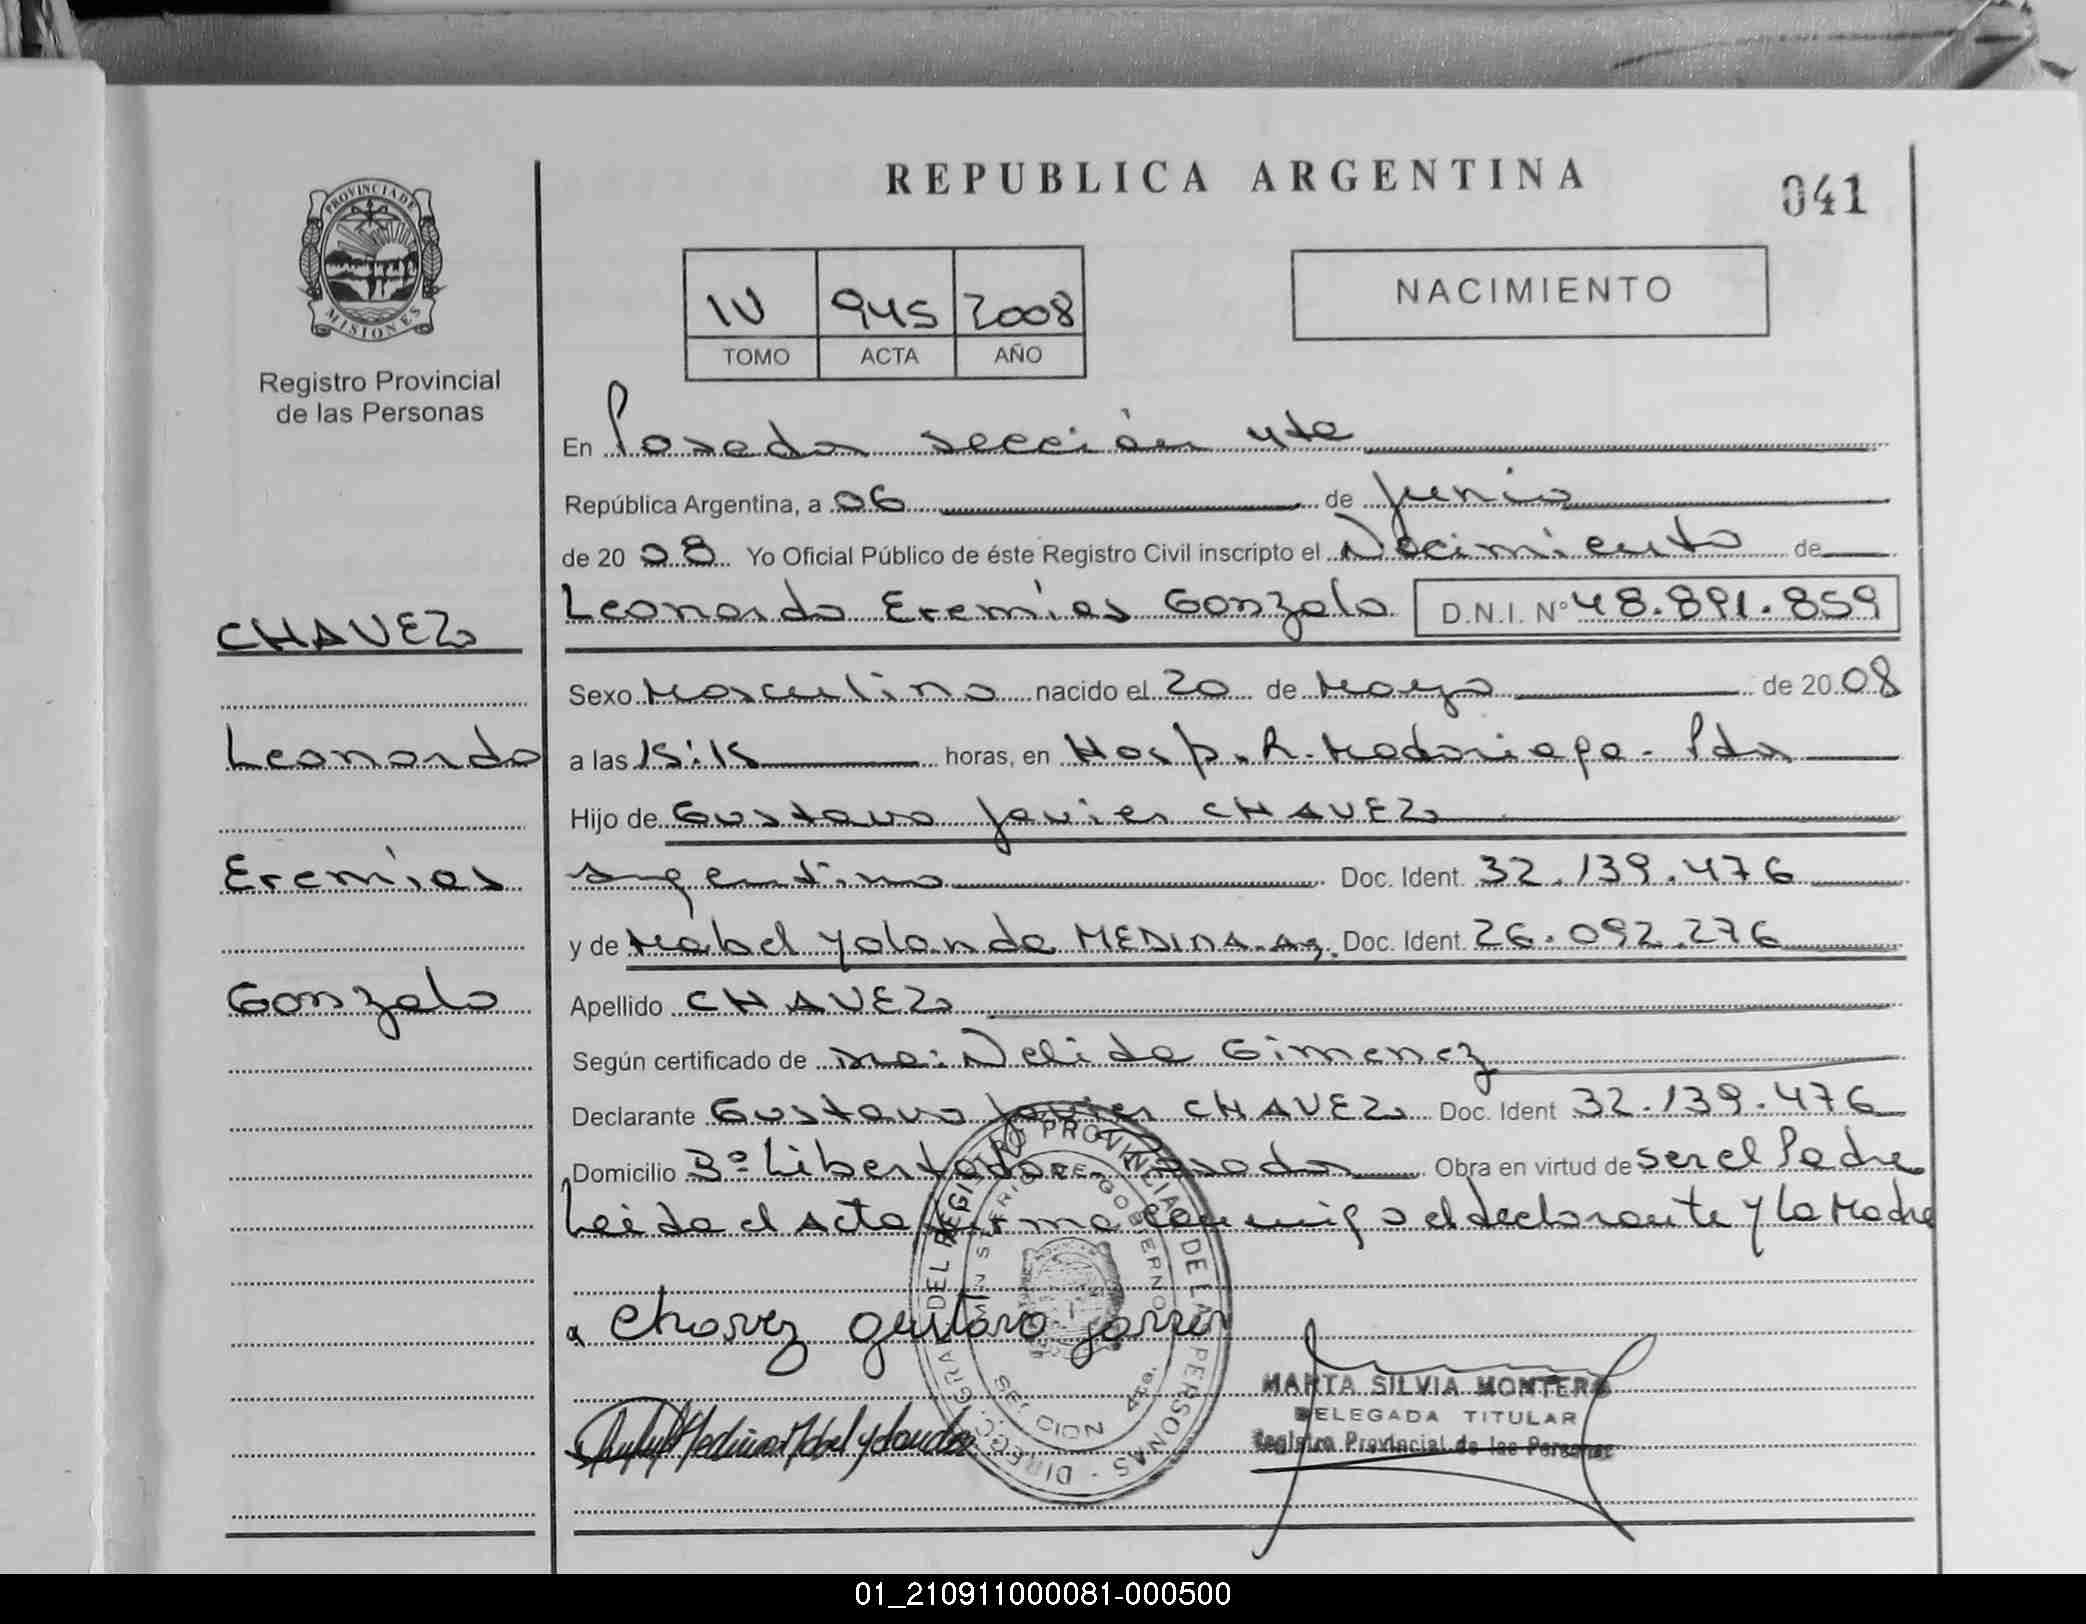 REPUBLICA ARGENTINA
041
PROVINCIA DE
MISIONES
Registro Provincial
de las Personas
IV 945 2008
TOMO ACTA AÑO
NACIMIENTO
En Posadas sección 4ta
República Argentina, a 06 de Junio
de 20 08 Yo Oficial Público de éste Registro Civil inscripto el Nacimiento de
CHAVEZ
Leonardo Eremías Gonzalo D.N.I. Nº 48.891.859
Sexo Masculino nacido el 20 de Mayo de 20 08
Leonardo
a las 15:15 horas, en Hosp. R. Madariaga - Pdas
Hijo de Gustavo Javier CHAVEZ
Eremías
argentino Doc. Ident. 32.139.476
y de Mabel Yolanda MEDINA. Arg. Doc. Ident. 26.092.276
Gonzalo
Apellido CHAVEZ
Según certificado de Nelida Gimenez
Declarante Gustavo Javier CHAVEZ Doc. Ident 32.139.476
Domicilio Bº Libertador - Posadas Obra en virtud de ser el Padre
Leida el Acta firma conmigo el declarante y La Madre
Chavez gustavo javier
Medina Mabel Yolanda
DIRECC. GRAL. DEL REGISTRO PROVINCIAL DE LAS PERSONAS
MINISTERIO DE GOBIERNO
SECCION 4ta.
MARTA SILVIA MONTERO
DELEGADA TITULAR
Registro Provincial de las Personas
01_210911000081-000500